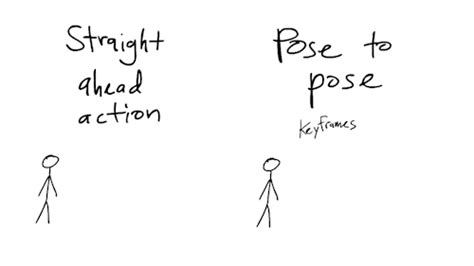 Straight
ahead
action
Pose to
pose
Keyframes